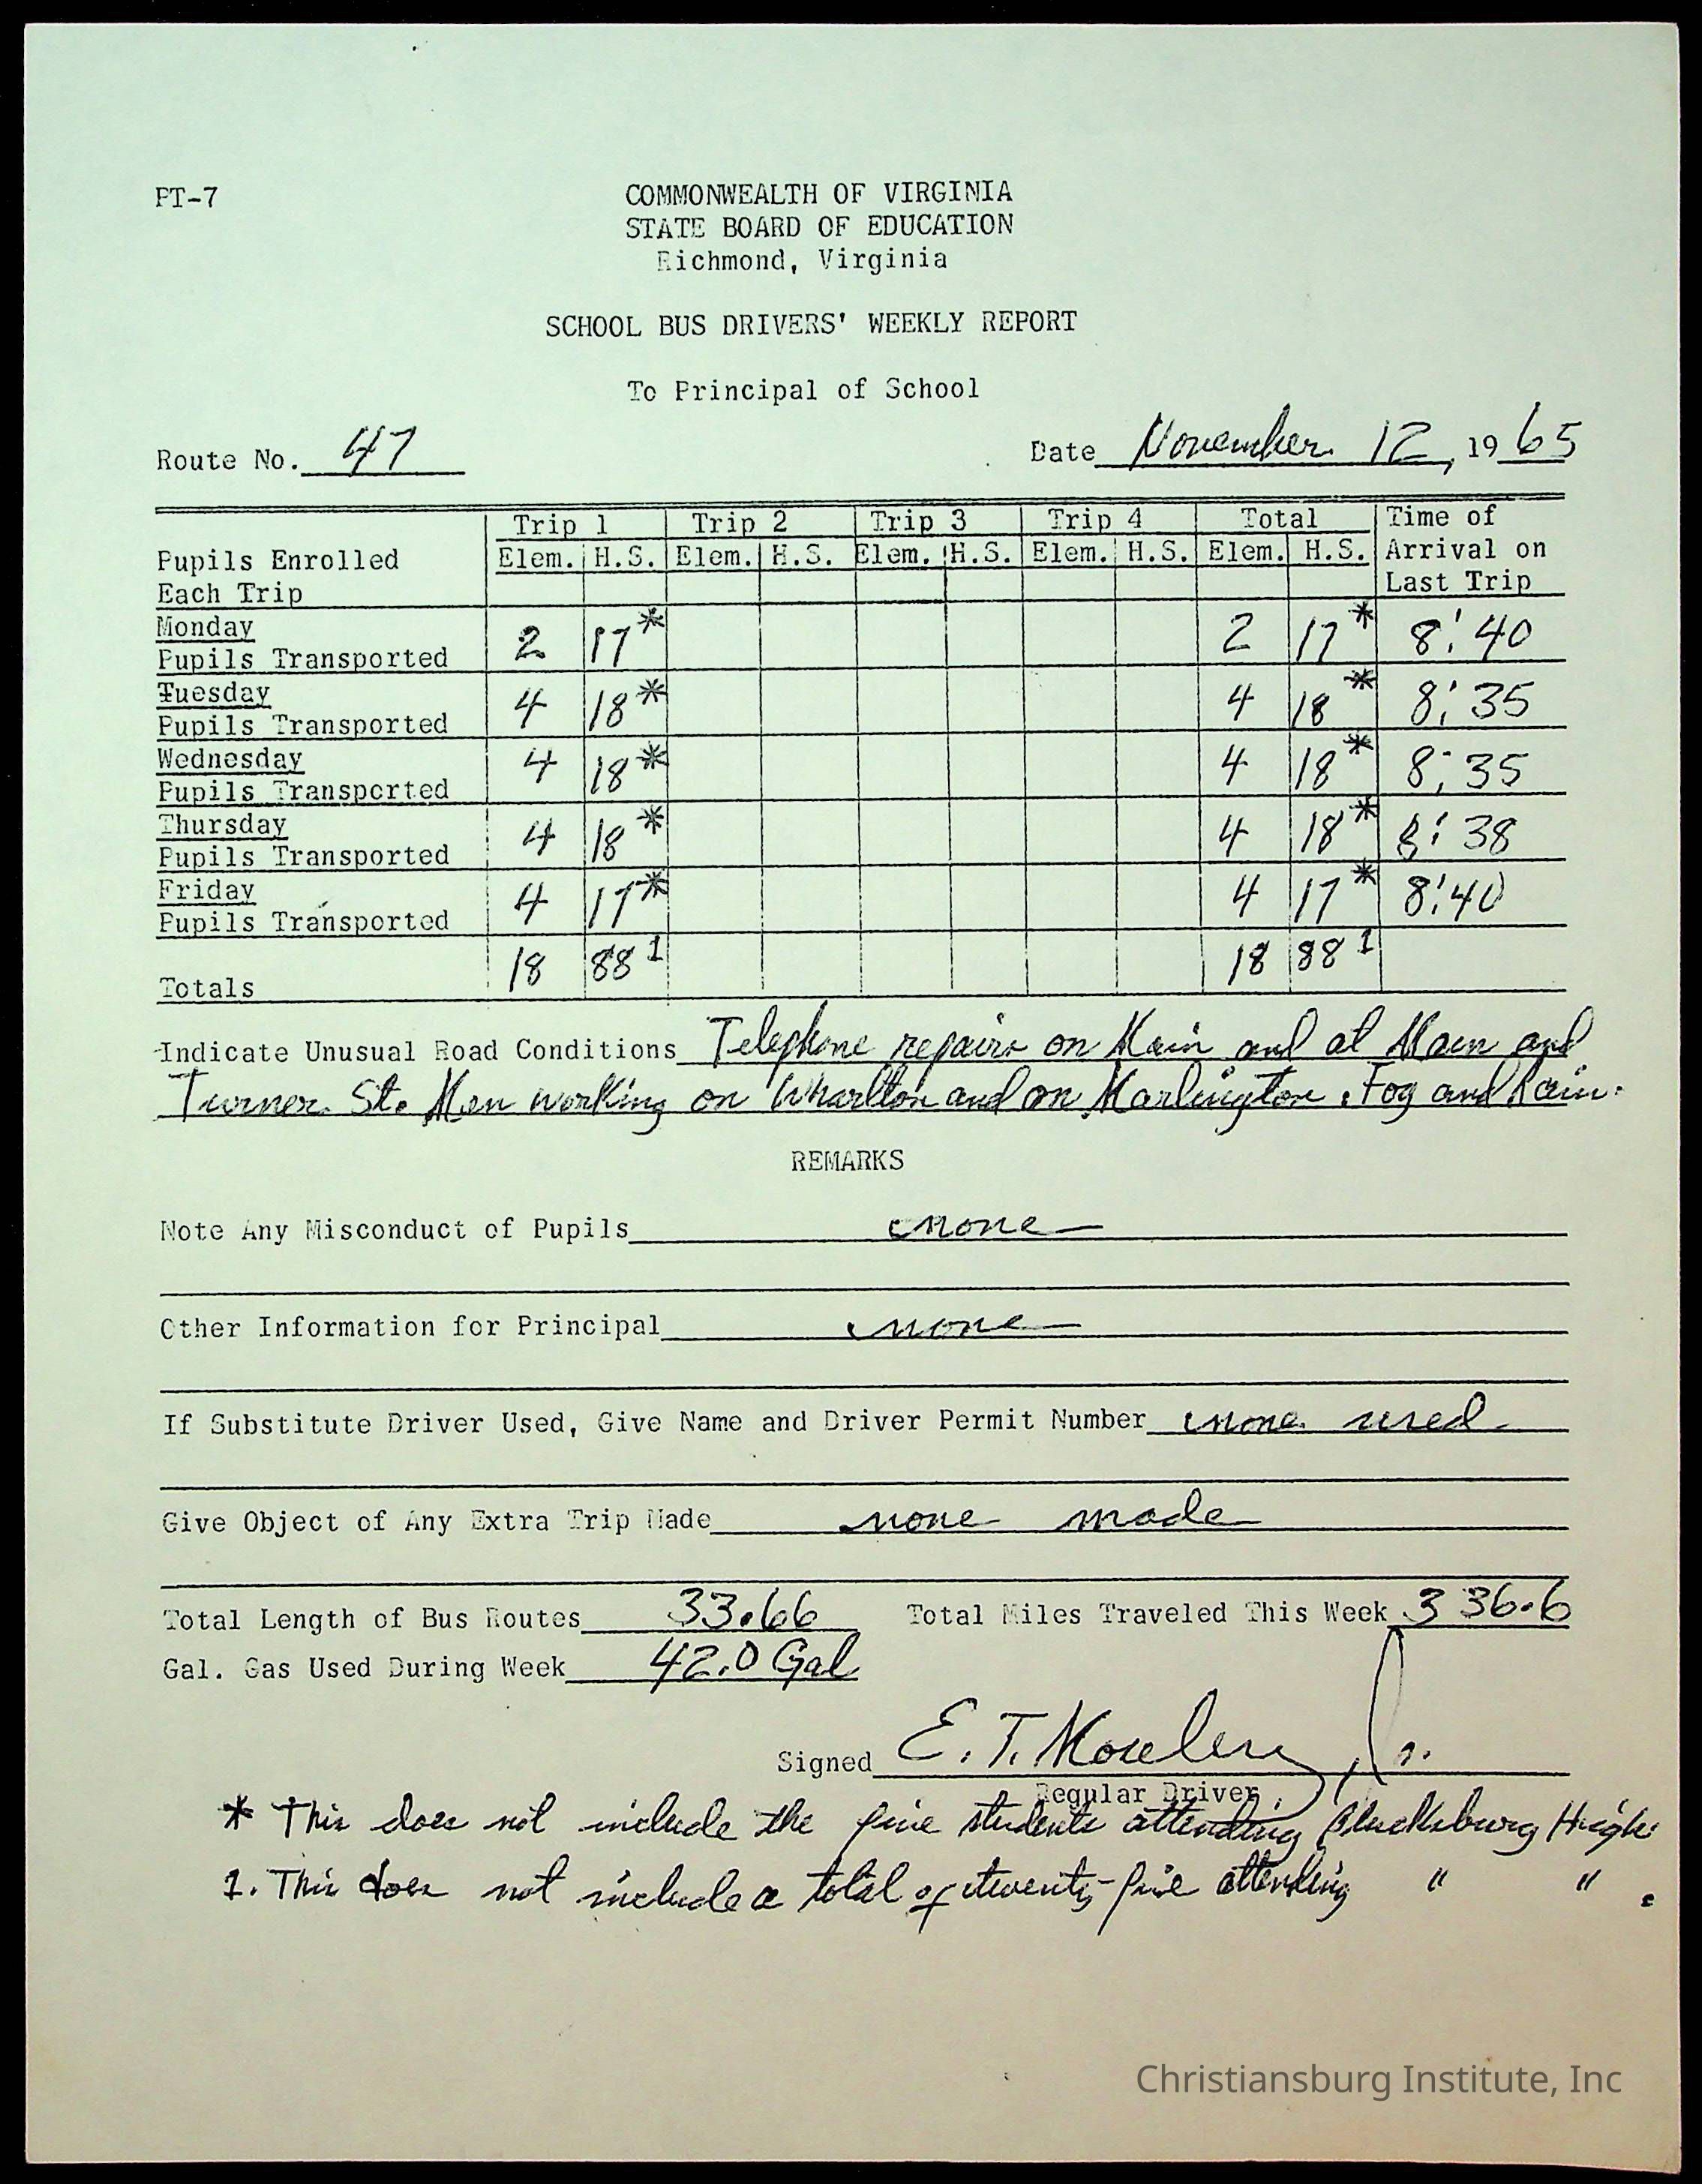 PT-7
COMMONWEALTH OF VIRGINIA
STATE BOARD OF EDUCATION
Richmond, Virginia
SCHOOL BUS DRIVERS' WEEKLY REPORT
To Principal of School
Route No. 47 Date November 12, 1965
Trip 1 Trip 2 Trip 3 Trip 4 Total Time of
Pupils Enrolled Elem. H.S. Elem. H.S. Elem. H.S. Elem. H.S. Elem. H.S. Arrival on
Each Trip Last Trip
Monday
Pupils Transported 2 17* 2 17* 8:40
Tuesday
Pupils Transported 4 18* 4 18* 8:35
Wednesday
Pupils Transported 4 18* 4 18* 8:35
Thursday
Pupils Transported 4 18* 4 18* 8:38
Friday
Pupils Transported 4 17* 4 17* 8:40
Totals 18 88 1 18 88 1
Indicate Unusual Road Conditions Telephone repairs on Main and at Main and
Turner St. Men working on Wharlton and on Marlington. Fog and Rain.
REMARKS
Note Any Misconduct of Pupils none
Other Information for Principal none
If Substitute Driver Used, Give Name and Driver Permit Number none used
Give Object of Any Extra Trip Made none made
Total Length of Bus Routes 33.66 Total Miles Traveled This Week 336.6
Gal. Gas Used During Week 42.0 Gal
Signed E. T. Jr.
Regular Driver
* This does not include the five students attending Blacksburg High
1. This does not include a total of twenty-five attending " " .
Christiansburg Institute, Inc